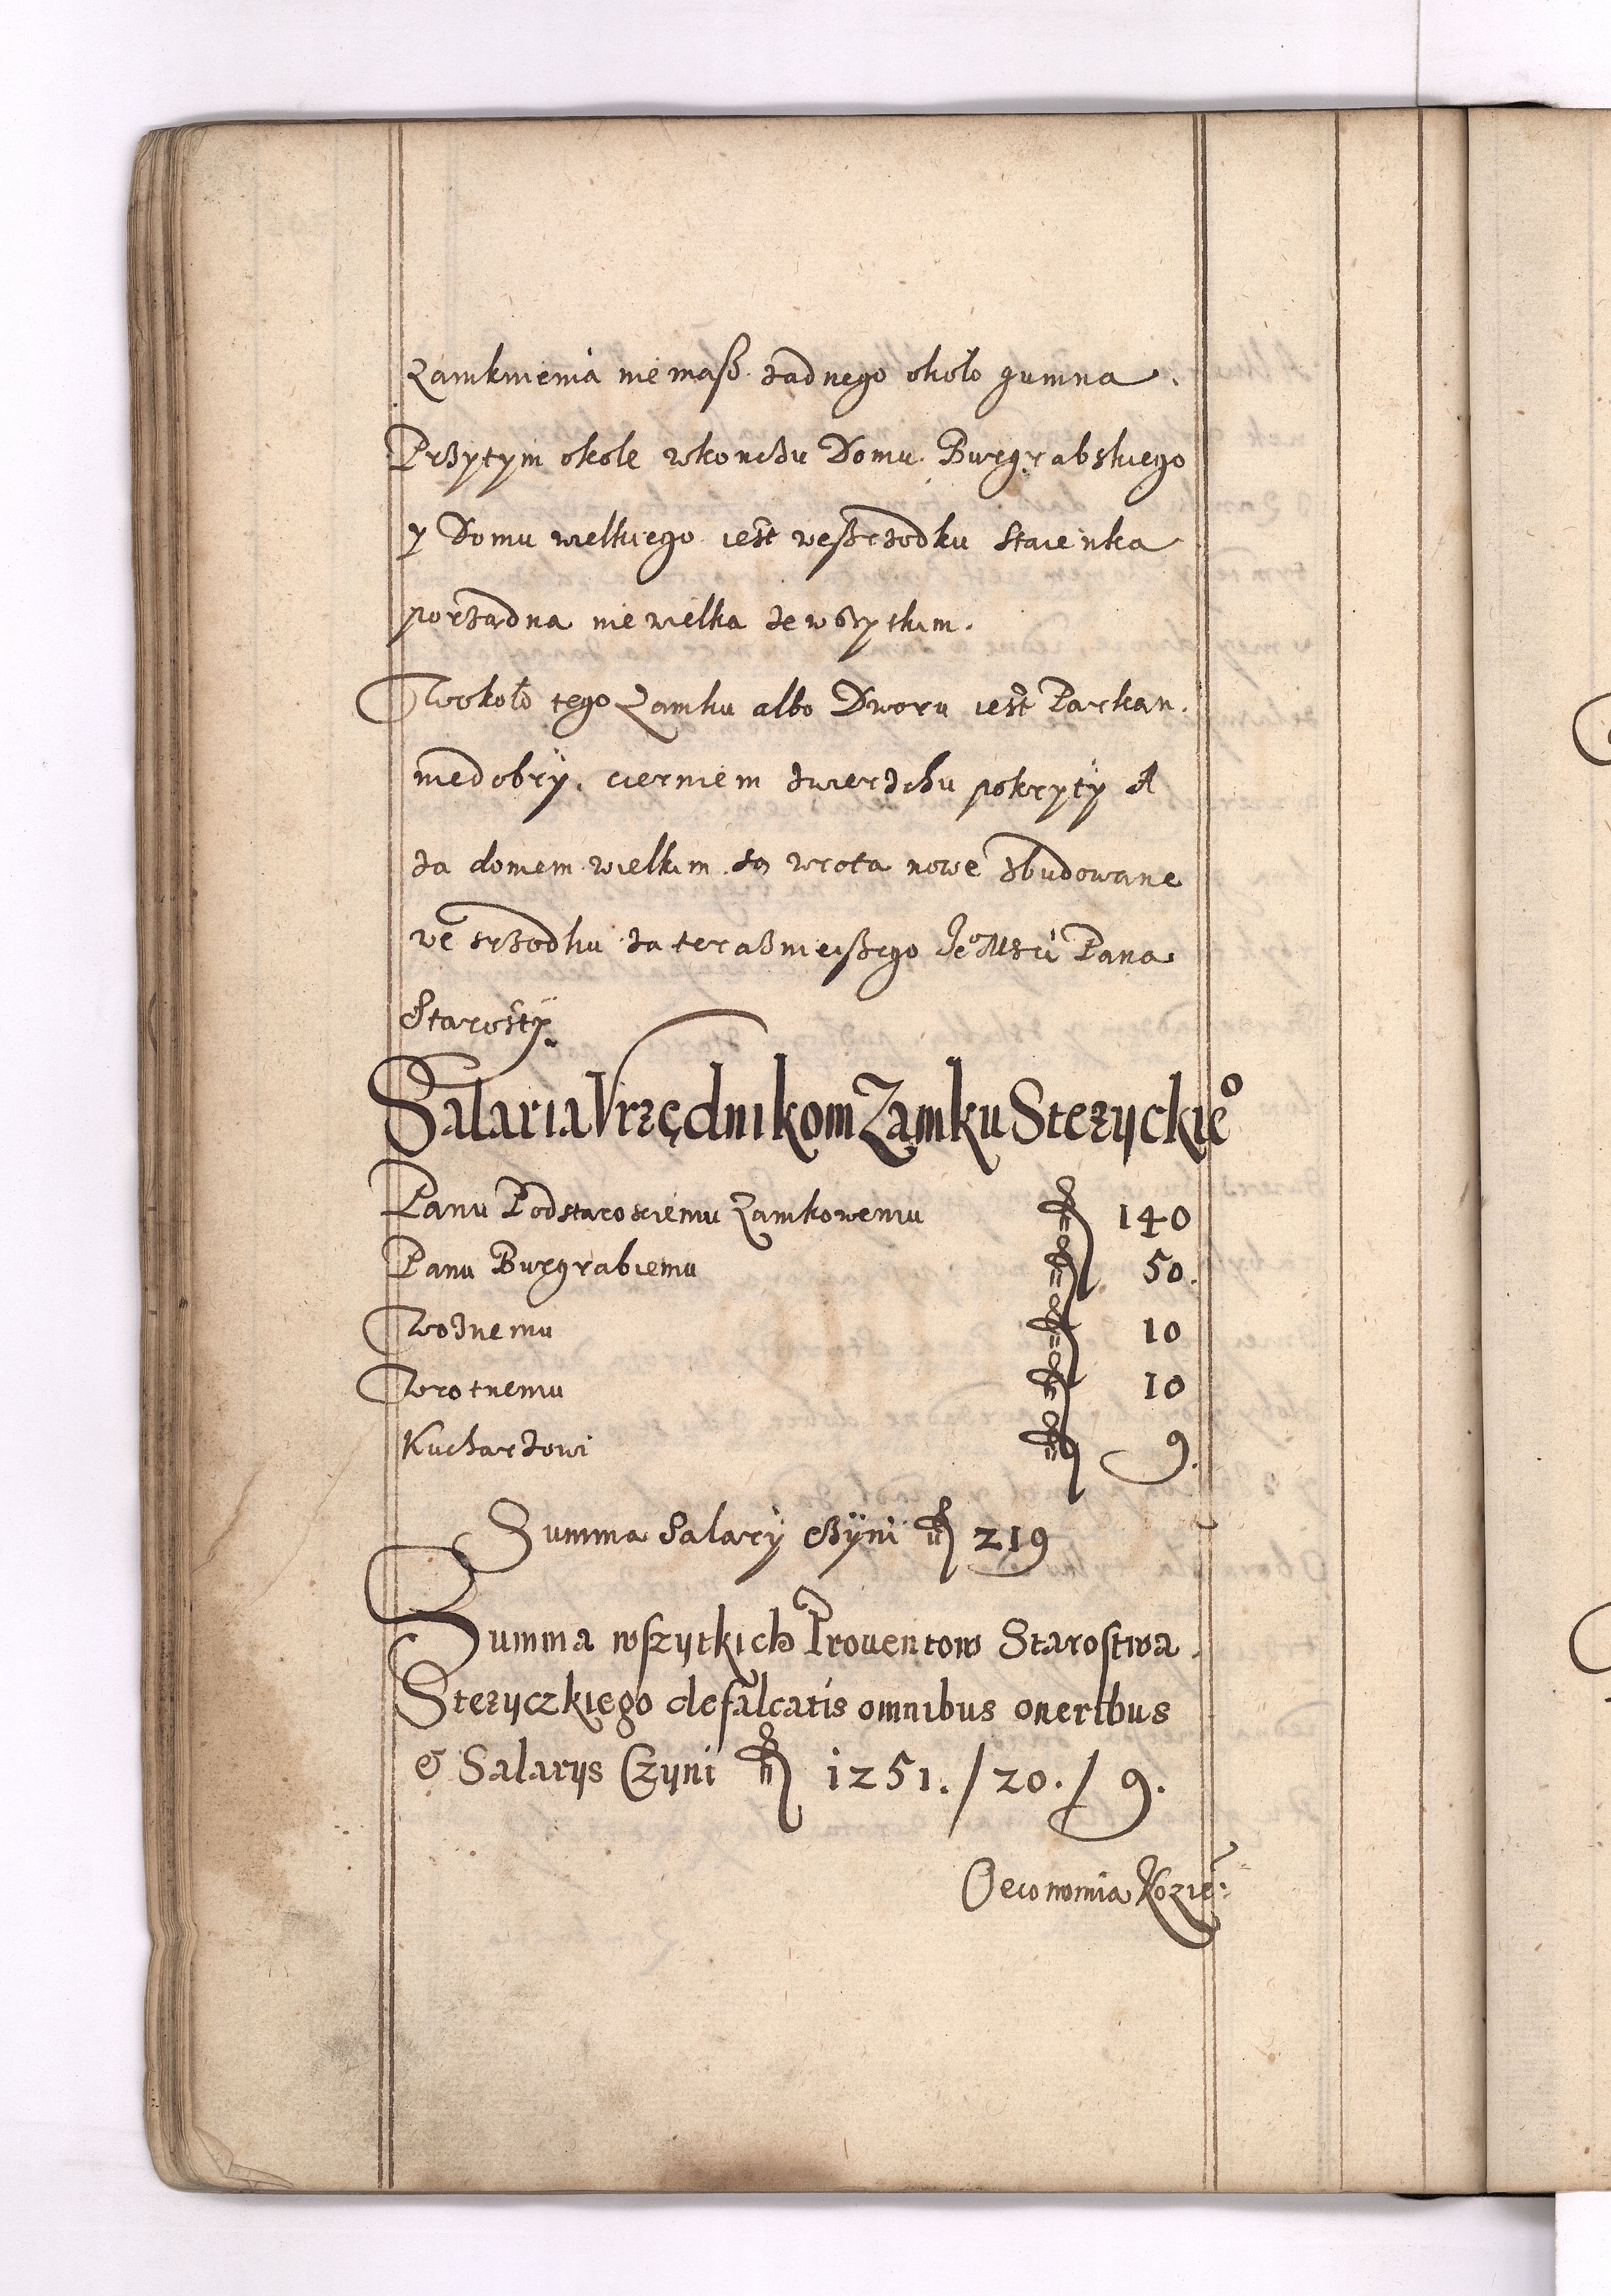 Zamknienia nie masz żadnego około gumna.
Przytym okole wkonczu Domu Burgrabskiego
y Domu wielkiego iest weszrzodku Staienka
porządna nie wielka ze wszytkim.
Wokoło tego Zamku albo Dworu iest Parkan.
niedobry. cierniem zwierzchu pokryty A
za domem wielkim są wrota nowe zbudowane
we srzodku za teraznieiszego Je° Mści Pana
Starosty.
Salaria Vrzędnikom Zamku Stezyckie°
Panu Podstarosciemu Zamkowemu fl 140
Panu Burgrabiemu fl 50.
Woznemu fl 10
Wrotnemu fl 10
Kucharzowi fl 9.
Summa Salary czÿni fl 219
Summa wszytkich Prouentow Starostwa.
Stezyczkiego defalcatis omnibus oneribus
& Salarys Czyni fl 1251. / 20. / 9.
Oeconomia Kozie: